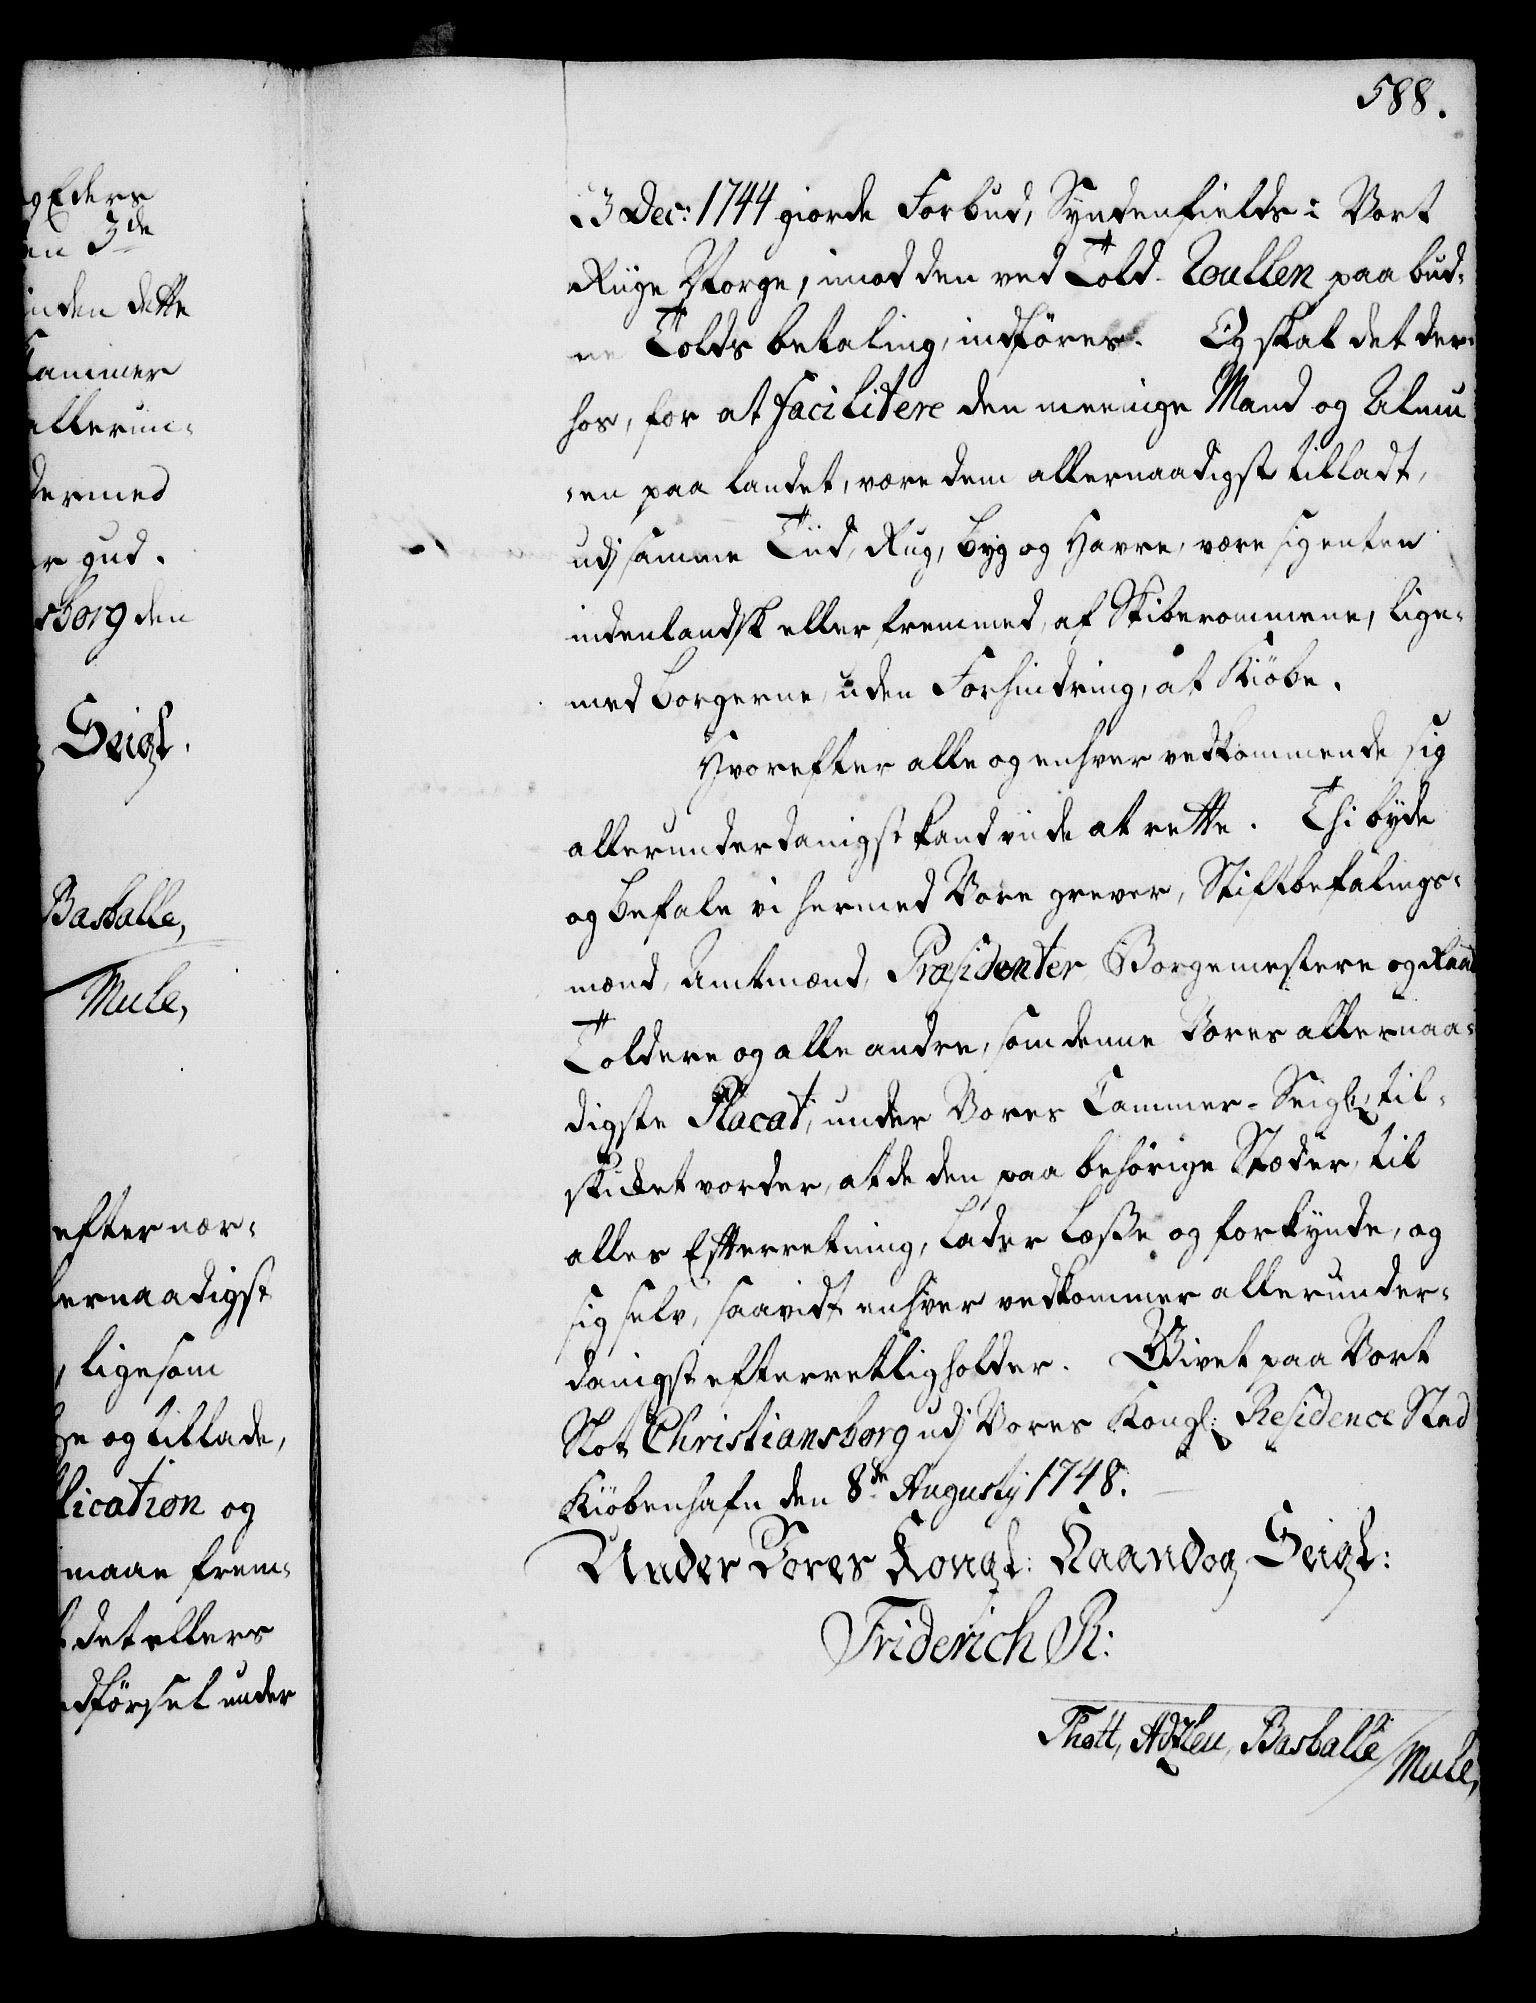 588.
g Eders
en 3de
inden dette
Cammer
allerun-
dermed
r gud.
sborg den
Seigl.
Basballe,
Mule,
efter nær-
lernaadigst
, ligesom
og tillade,
lication og
maae frem-
det ellers
ndførsel under
3 Dec: 1744 giorde Forbud, Syndenfields i Vort
Riige Norge, imod den ved Told-Roullen paabud-
ne Tolds betaling, indføres. Og skal det der-
hos, for at facilitere den meenige Mand og Almu
-en paa landet, være dem allernaadigst tilladt,
udj samme Tiid, Rug, Byg og Havre, være sig enten
indenlandsk eller fremmed, af Skiberommene, lige-
med Borgerne, uden Forhindring, at Kiöbe.
Hvorefter alle og enhver vedkommende sig
allerunderdanigst kand viide at rette. Thi byde
og befale vi hermed Vore grever, Stiftbefalings-
mænd, Amtmænd, Præsidenter Borgemestere og Raad
Toldere og alle andre, som denne Vores allernaa-
digste Placat, under Vores Cammer-Seigl, til-
skicket vorder, at de den paa behörige Stæder, til
alles Efterretning, lader læsse og forkynde, og
sig selv, saavidt enhver vedkommer allerunder-
danigst efterrettlig holder. Givet paa Vort
Slot Christiansborg udj Vores Kongl: Residence Stad
Kiöbenhafn den 8de Augustij 1748.
Under Vores Kongl: Haand og Seigl:
Friderich R:
Thott, Adtzleu, Basballe
Mule,